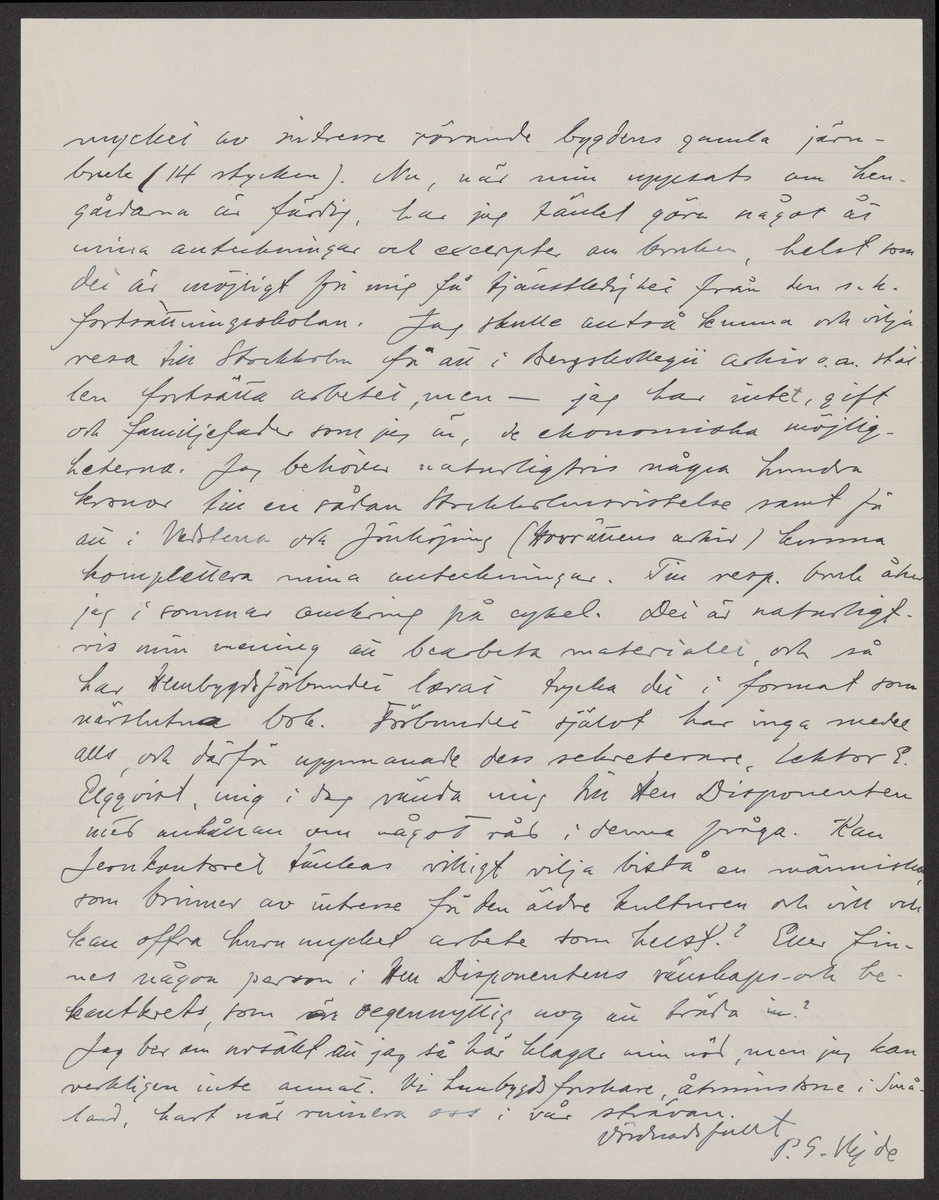 mycket av intresse rörande bygdens gamla järn-
bruk (14 stycken). Nu, när min uppsats om her-
gårdarna är färdig, har jag tänkt göra något åt
mina anteckningar och excerpter om bruken, helst som
det är möjligt för mig få tjänstledighet från den s.k.
fortsättningsskolan. Jag skulle alltså kunna och vilja
resa till Stockholm för att i Bergskollegii arkiv o.a. stäl-
len fortsätta arbetet, men — jag har intet, gift
och familjefader som jag är, de ekonomiska möjlig-
heterna. Jag behöver naturligtvis några hundra
kronor till en sådan Stockholmsvistelse samt för
att i Vadstena och Jönköping (Hovrättens arkiv) kunna
komplettera mina anteckningar. Till resp. bruk åker
jag i sommar omkring på cykel. Det är naturligt-
vis min mening att bearbeta materialet, och så
har Hembygdsförbundet lovat trycka det i format som
närslutna bok. Förbundet självt har inga medel
alls, och därför uppmanade dess sekreterare, lektor E.
Elgqvist, mig i dag vända mig till Herr Disponenten
med anhållan om något råd i denna fråga. Kan
Jernkontoret tänkas möjligt vilja bistå en människa,
som brinner av intresse för den äldre kulturen och vill och
kan offra huru mycket arbete som helst? Eller fin-
nes någon person i Herr Disponentens vänskaps- och be-
kantkrets, som är oegennyttig nog att träda in?
Jag ber om ursäkt att jag så här klagar min nöd, men jag kan
verkligen inte annat. Vi hembygdsforskare, åtminstone i Små-
land, hart när ruinera oss i vår strävan.
Vördnadsfullt
P. G. Vejde